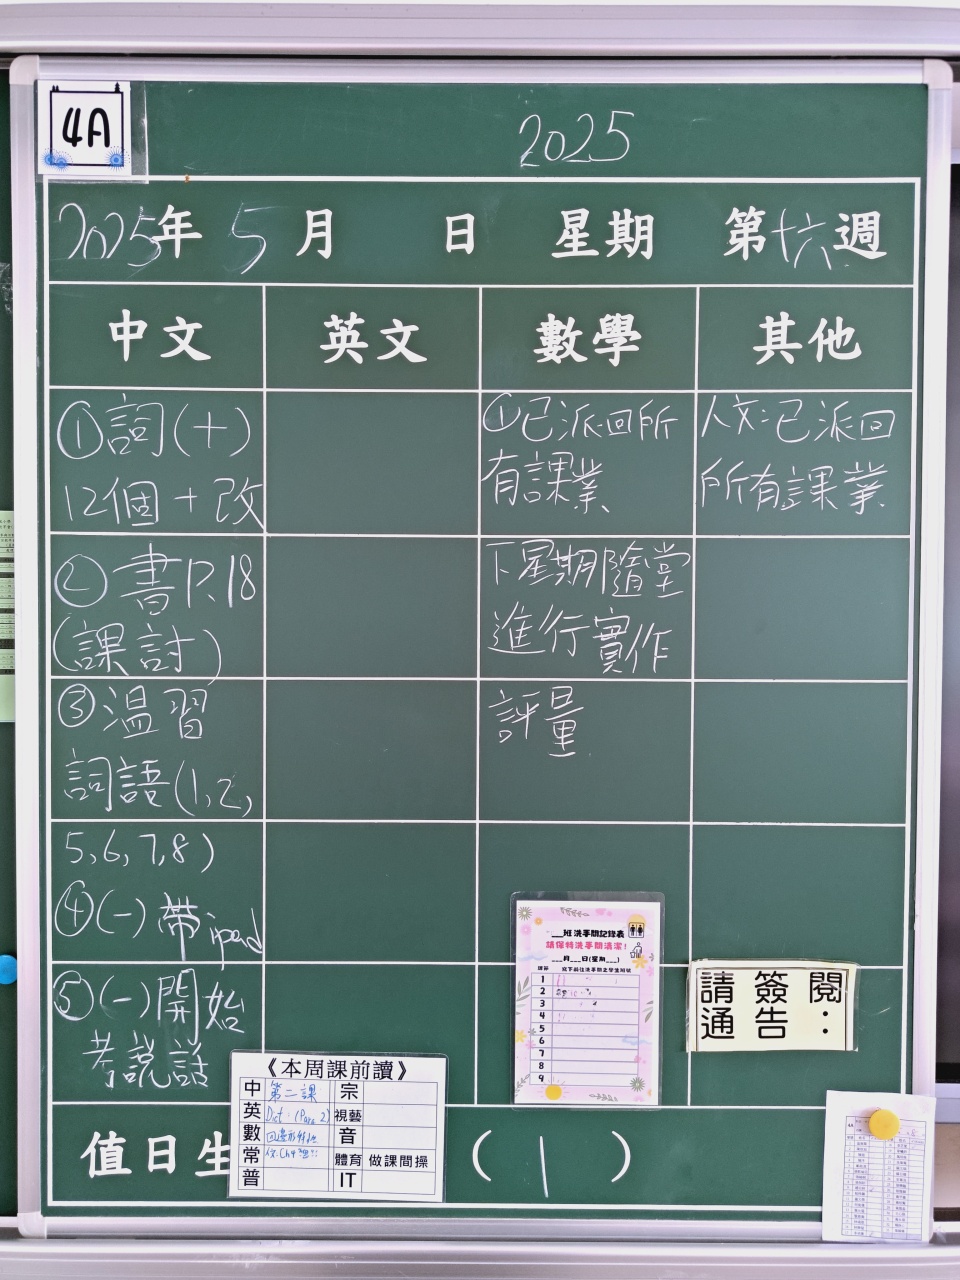 4A
2025
2025年 5月 日 星期 第十六週
中文 英文 數學 其他
①詞(十)
12個+改
②書P.18
(課討)
③温習
詞語(1,2,
5,6,7,8)
④(一)帶ipad
⑤(一)開始
考説話
①已派回所
有課業
下星期隨堂
進行實作
評量
人文:已派回
所有課業
___班洗手間記錄表
請保持洗手間清潔!
___月___日(星期___)
課節 寫下前往洗手間之學生班號
1
2
3
4
5
6
7
8
9
請簽閱
通告:
《本周課前讀》
中 第二課 宗
英 Dict. (Para 2) 視藝
數 音
常 體育 做課間操
普 IT
值日生 (1)